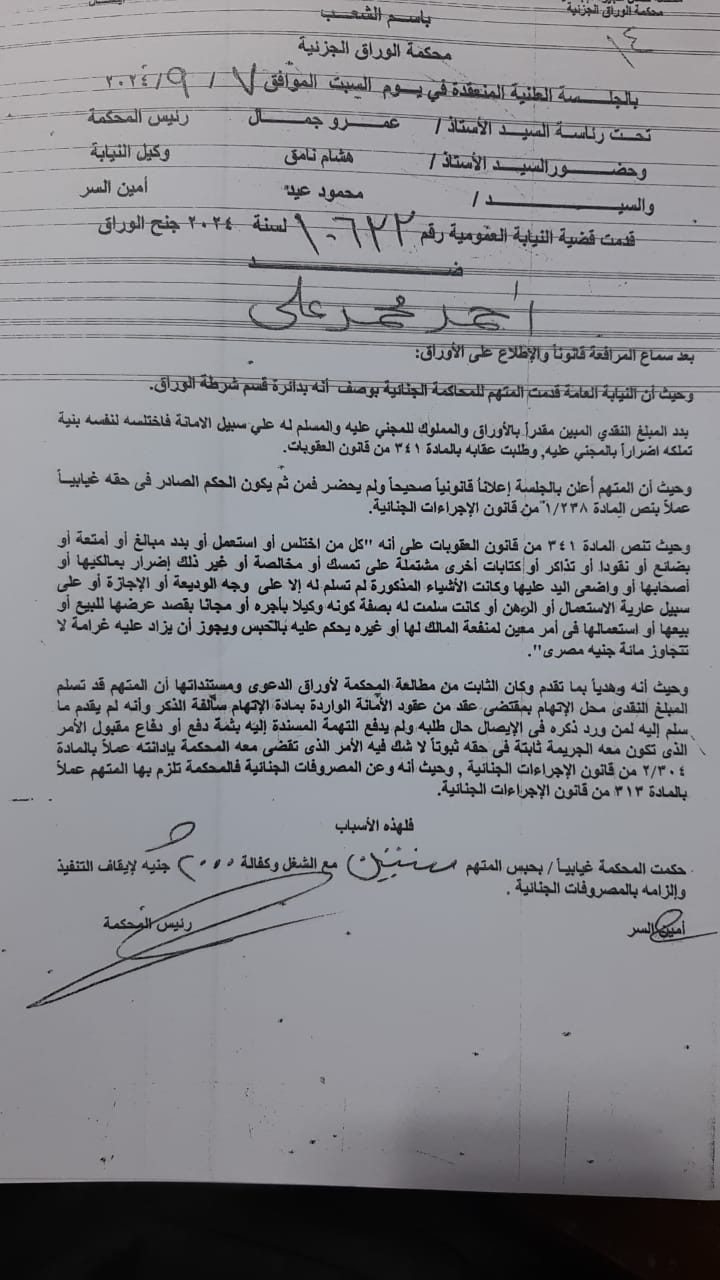 محكمة الوراق الجزئية
١٤
باسم الشعب
محكمة الوراق الجزئية
بالجلسة العلنية المنعقدة في يوم السبت الموافق ٧ / ٩ / ٢٠٢٤
تحت رئاسة السيد الأستاذ / عمرو جمال رئيس المحكمة
وحضور السيد الأستاذ / هشام نامق وكيل النيابة
والسيد / محمود عيد أمين السر
قدمت قضية النيابة العمومية رقم ١٠٦٢٢ لسنة ٢٠٢٤ جنح الوراق
ضد
احمد محمد على
بعد سماع المرافعة قانوناً والإطلاع على الأوراق:
وحيث أن النيابة العامة قدمت المتهم للمحاكمة الجنائية بوصف أنه بدائرة قسم شرطة الوراق.
بدد المبلغ النقدي المبين مقدراً بالأوراق والمملوك للمجني عليه والمسلم له علي سبيل الامانة فاختلسه لنفسه بنية
تملكه اضراراً بالمجني عليه, وطلبت عقابه بالمادة ٣٤١ من قانون العقوبات.
وحيث أن المتهم أعلن بالجلسة إعلاناً قانونياً صحيحاً ولم يحضر فمن ثم يكون الحكم الصادر فى حقه غيابياً
عملاً بنص المادة ١/٢٣٨ من قانون الإجراءات الجنائية.
وحيث تنص المادة ٣٤١ من قانون العقوبات على أنه "كل من اختلس أو استعمل أو بدد مبالغ أو أمتعة أو
بضائع أو نقودا أو تذاكر أو كتابات أخرى مشتملة على تمسك أو مخالصة أو غير ذلك إضرار بمالكيها أو
أصحابها أو واضعى اليد عليها وكانت الأشياء المذكورة لم تسلم له إلا على وجه الوديعة أو الإجازة أو على
سبيل عارية الاستعمال أو الرهن أو كانت سلمت له بصفة كونه وكيلا بأجره أو مجانا بقصد عرضها للبيع أو
بيعها أو استعمالها فى أمر معين لمنفعة المالك لها أو غيره يحكم عليه بالحبس ويجوز أن يزاد عليه غرامة لا
تتجاوز مائة جنيه مصرى".
وحيث أنه وهدياً بما تقدم وكان الثابت من مطالعة المحكمة لأوراق الدعوى ومستنداتها أن المتهم قد تسلم
المبلغ النقدى محل الإتهام بمقتضى عقد من عقود الأمانة الواردة بمادة الإتهام سالفة الذكر وأنه لم يقدم ما
سلم إليه لمن ورد ذكره فى الإيصال حال طلبه ولم يدفع التهمة المسندة إليه بثمة دفع أو دفاع مقبول الأمر
الذى تكون معه الجريمة ثابتة فى حقه ثبوتاً لا شك فيه الأمر الذى تقضى معه المحكمة بإدانته عملاً بالمادة
٢/٣٠٤ من قانون الإجراءات الجنائية , وحيث أنه وعن المصروفات الجنائية فالمحكمة تلزم بها المتهم عملاً
بالمادة ٣١٣ من قانون الإجراءات الجنائية.
فلهذه الأسباب
حكمت المحكمة غيابياً / بحبس المتهم سنتين مع الشغل وكفالة ٢٠٠٠ جنيه لإيقاف التنفيذ
وإلزامه بالمصروفات الجنائية .
أمين السر رئيس المحكمة